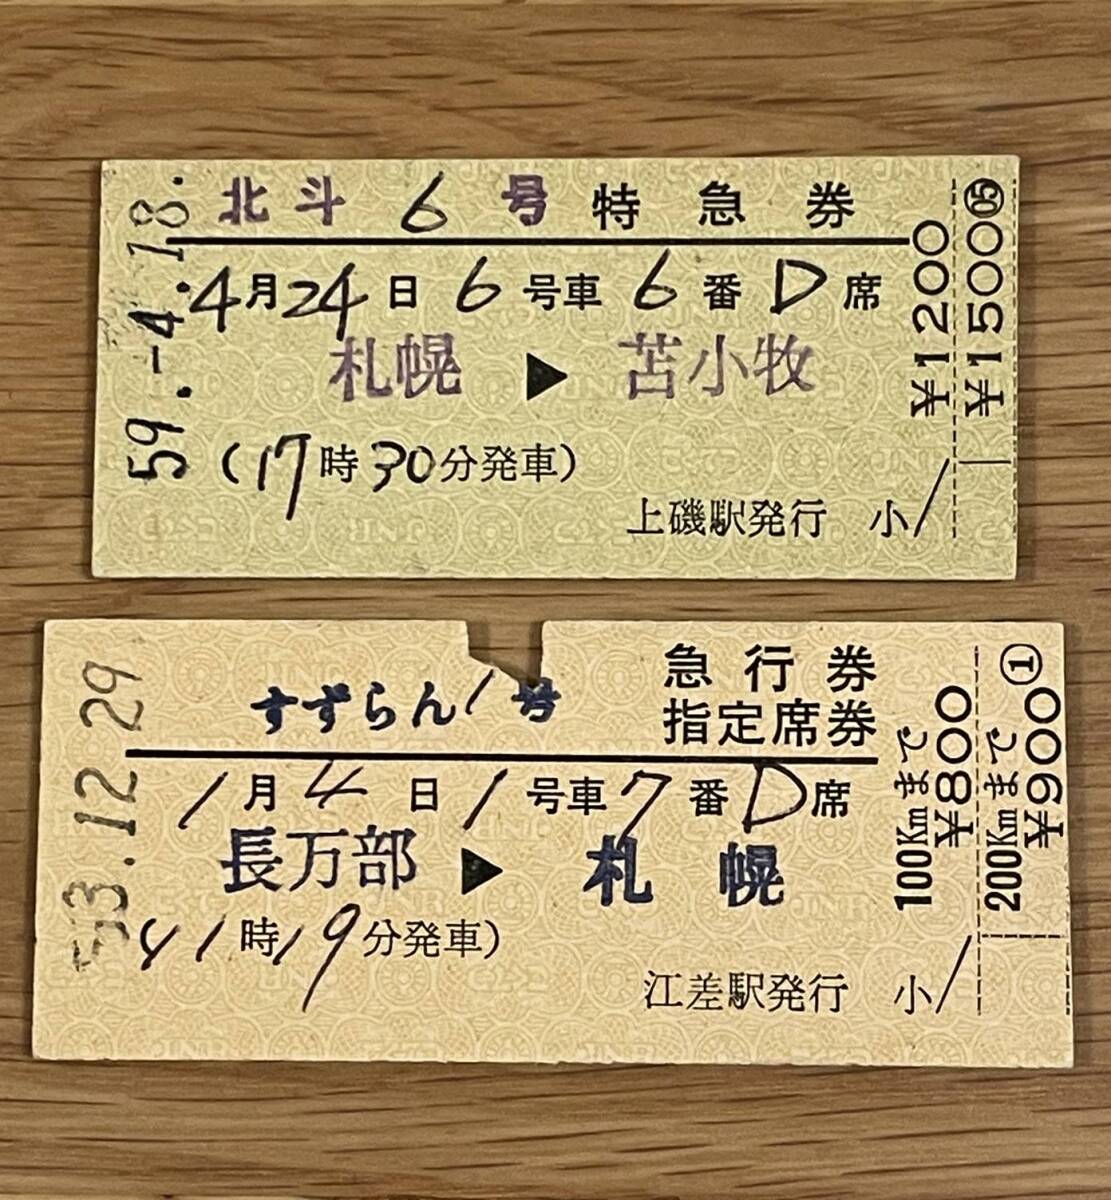 59.-4.18.
北斗 6 号 特急券
4月24日 6号車 6番 D席
札幌 ▶ 苫小牧
(17時30分発車)
上磯駅発行 小
¥1200
¥1500
05
53.12.29
すずらん 1 号
急行券
指定席券
1月4日 1号車 7番 D席
長万部 ▶ 札幌
1時19分発車)
江差駅発行 小
100Kmまで
¥800
200Kmまで
¥900
1